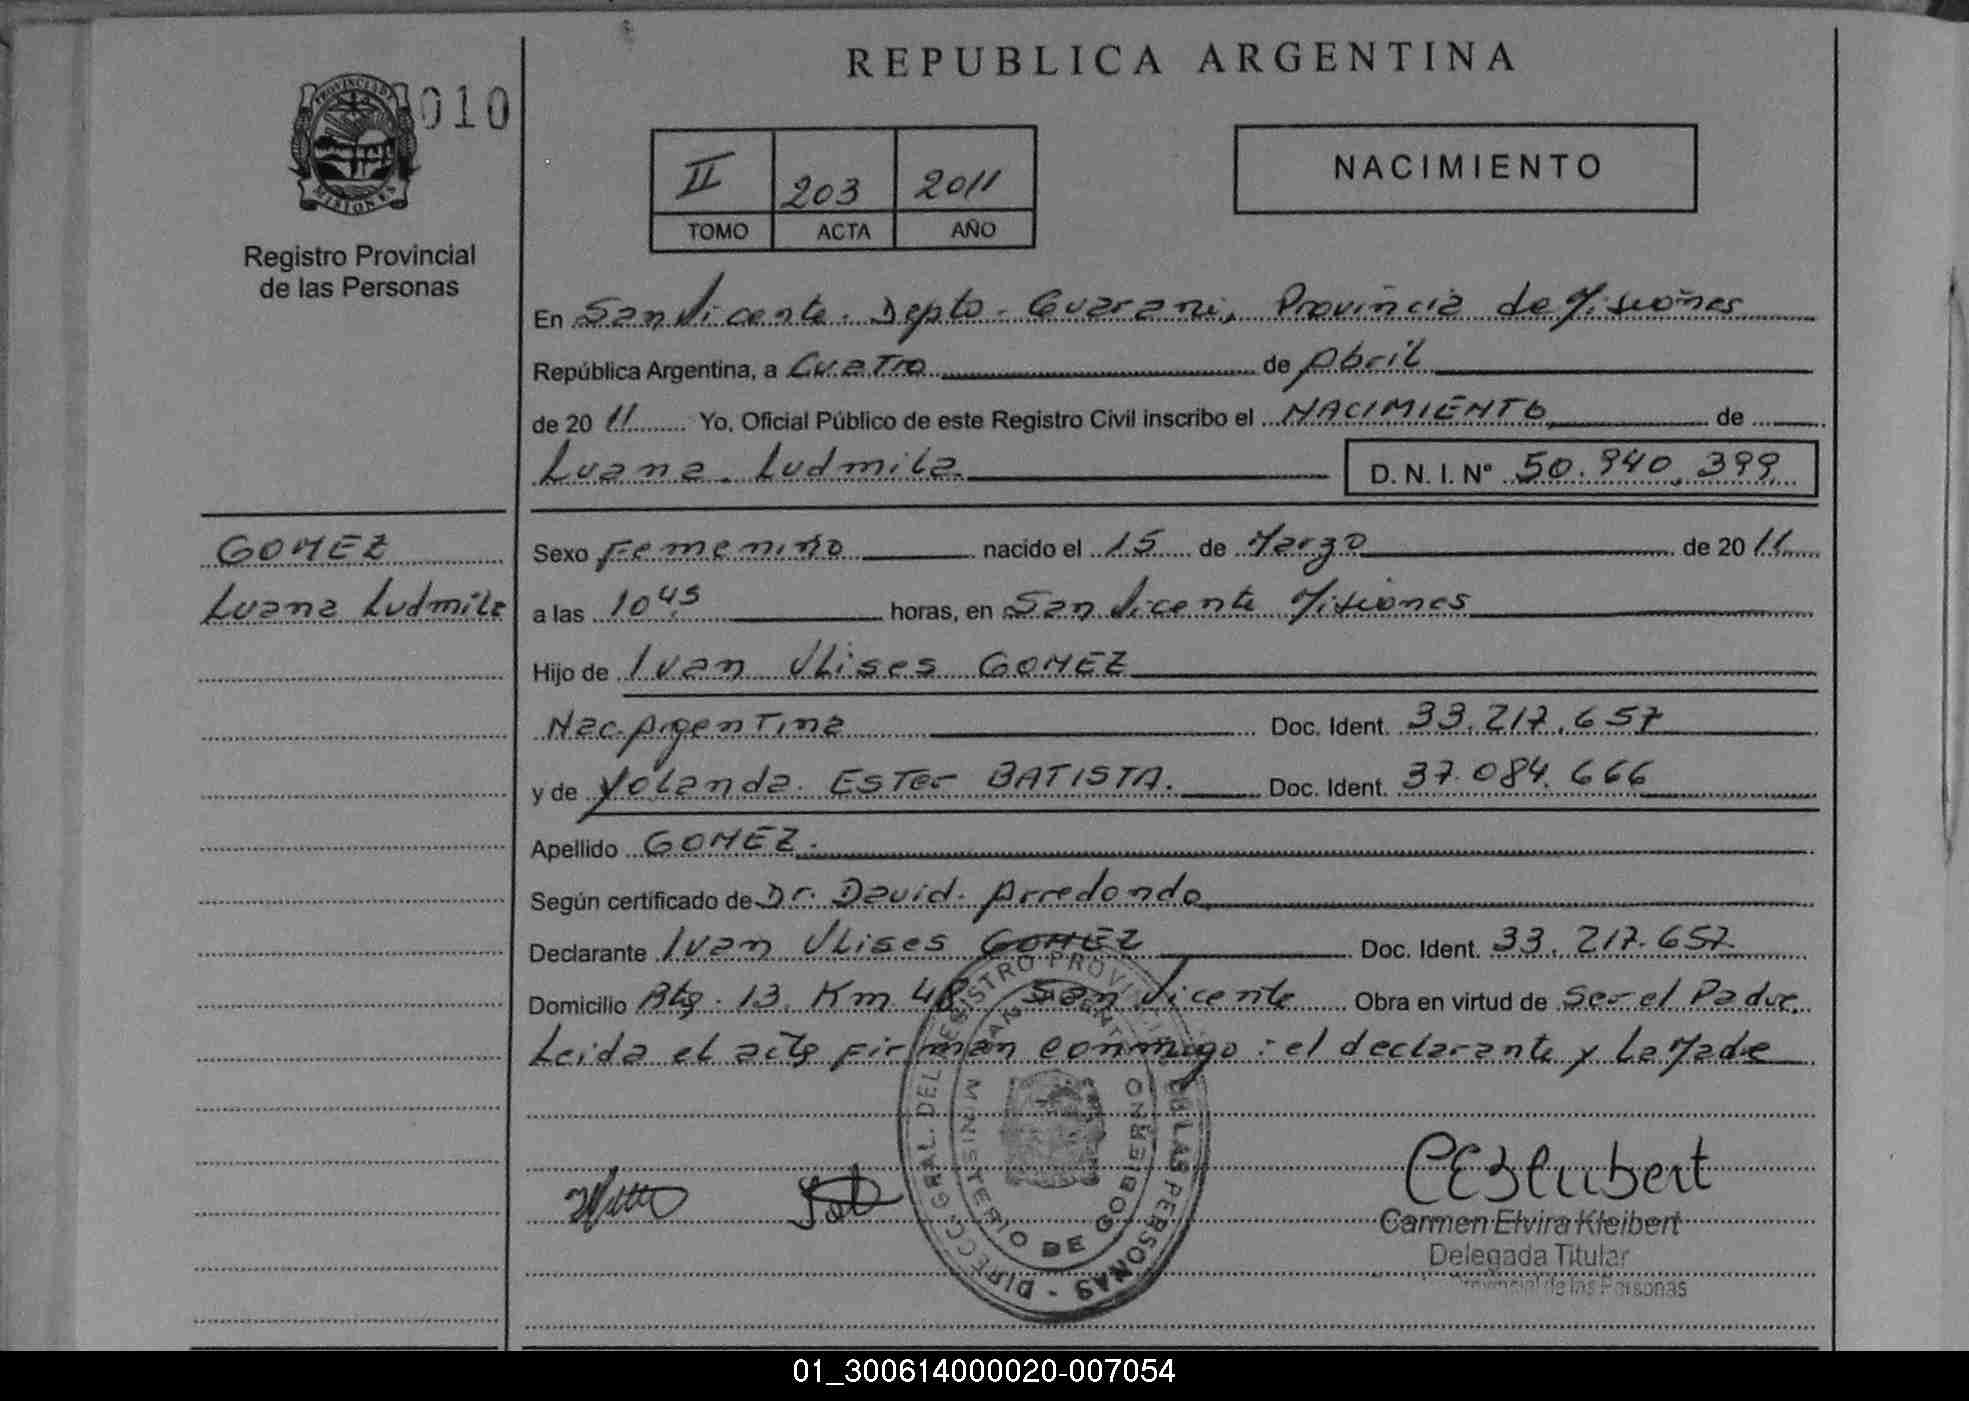 REPUBLICA ARGENTINA
PROVINCIA DE MISIONES
010
II 203 2011
TOMO ACTA AÑO
NACIMIENTO
Registro Provincial
de las Personas
En San Vicente. Depto. Guarani, Provincia de Misiones
República Argentina, a Cuatro de Abril
de 2011 Yo, Oficial Público de este Registro Civil inscribo el NACIMIENTO de
Luana Ludmila. D. N. I. Nº 50.940.399
GOMEZ
Luana Ludmila
Sexo Femenino nacido el 15 de Marzo de 2011
a las 10 45 horas, en San Vicente Misiones
Hijo de Ivan Ulises GOMEZ
Nac. Argentina Doc. Ident. 33.217.657
y de Yolanda Ester BATISTA. Doc. Ident. 37.084.666
Apellido GOMEZ.
Según certificado de Dr. David Arredondo
Declarante Ivan Ulises GOMEZ Doc. Ident. 33.217.657
Domicilio Km 48 San Vicente Obra en virtud de Ser el Padre.
Leida el acta firman conmigo: el declarante y la Madre
DIRECC. GRAL. DEL REGISTRO PROVINCIAL DE LAS PERSONAS
MINISTERIO DE GOBIERNO
SAN VICENTE
Carmen Elvira Kleibert
Delegada Titular
Provincial de las Personas
01_300614000020-007054